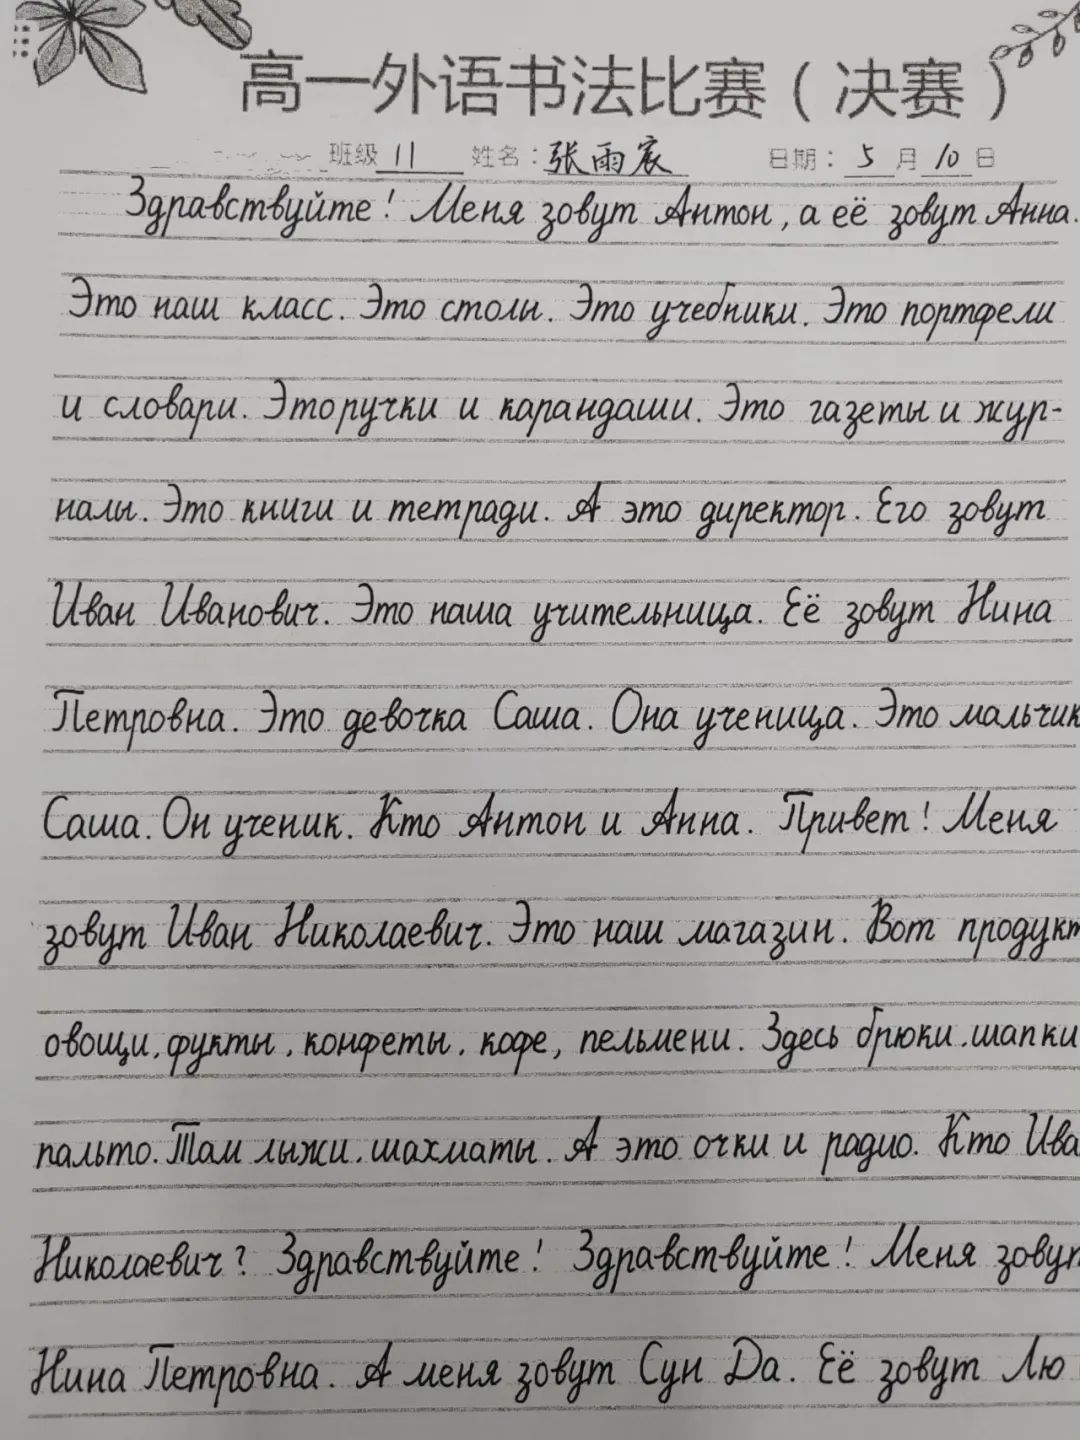 高一外语书法比赛（决赛）
班级 11 姓名：张雨宸 日期：5月10日
Здравствуйте! Меня зовут Антон, а её зовут Анна.
Это наш класс. Это столы. Это учебники. Это портфели
и словари. Это ручки и карандаши. Это газеты и жур-
налы. Это книги и тетради. А это директор. Его зовут
Иван Иванович. Это наша учительница. Её зовут Нина
Петровна. Это девочка Саша. Она ученица. Это мальчик
Саша. Он ученик. Кто Антон и Анна. Привет! Меня
зовут Иван Николаевич. Это наш магазин. Вот продукт
овощи, фукты, конфеты, кофе, пельмени. Здесь брюки, шапки
пальто. Там лыжи, шахматы. А это очки и радио. Кто Ива
Николаевич? Здравствуйте! Здравствуйте! Меня зовут
Нина Петровна. А меня зовут Сун Да. Её зовут Лю